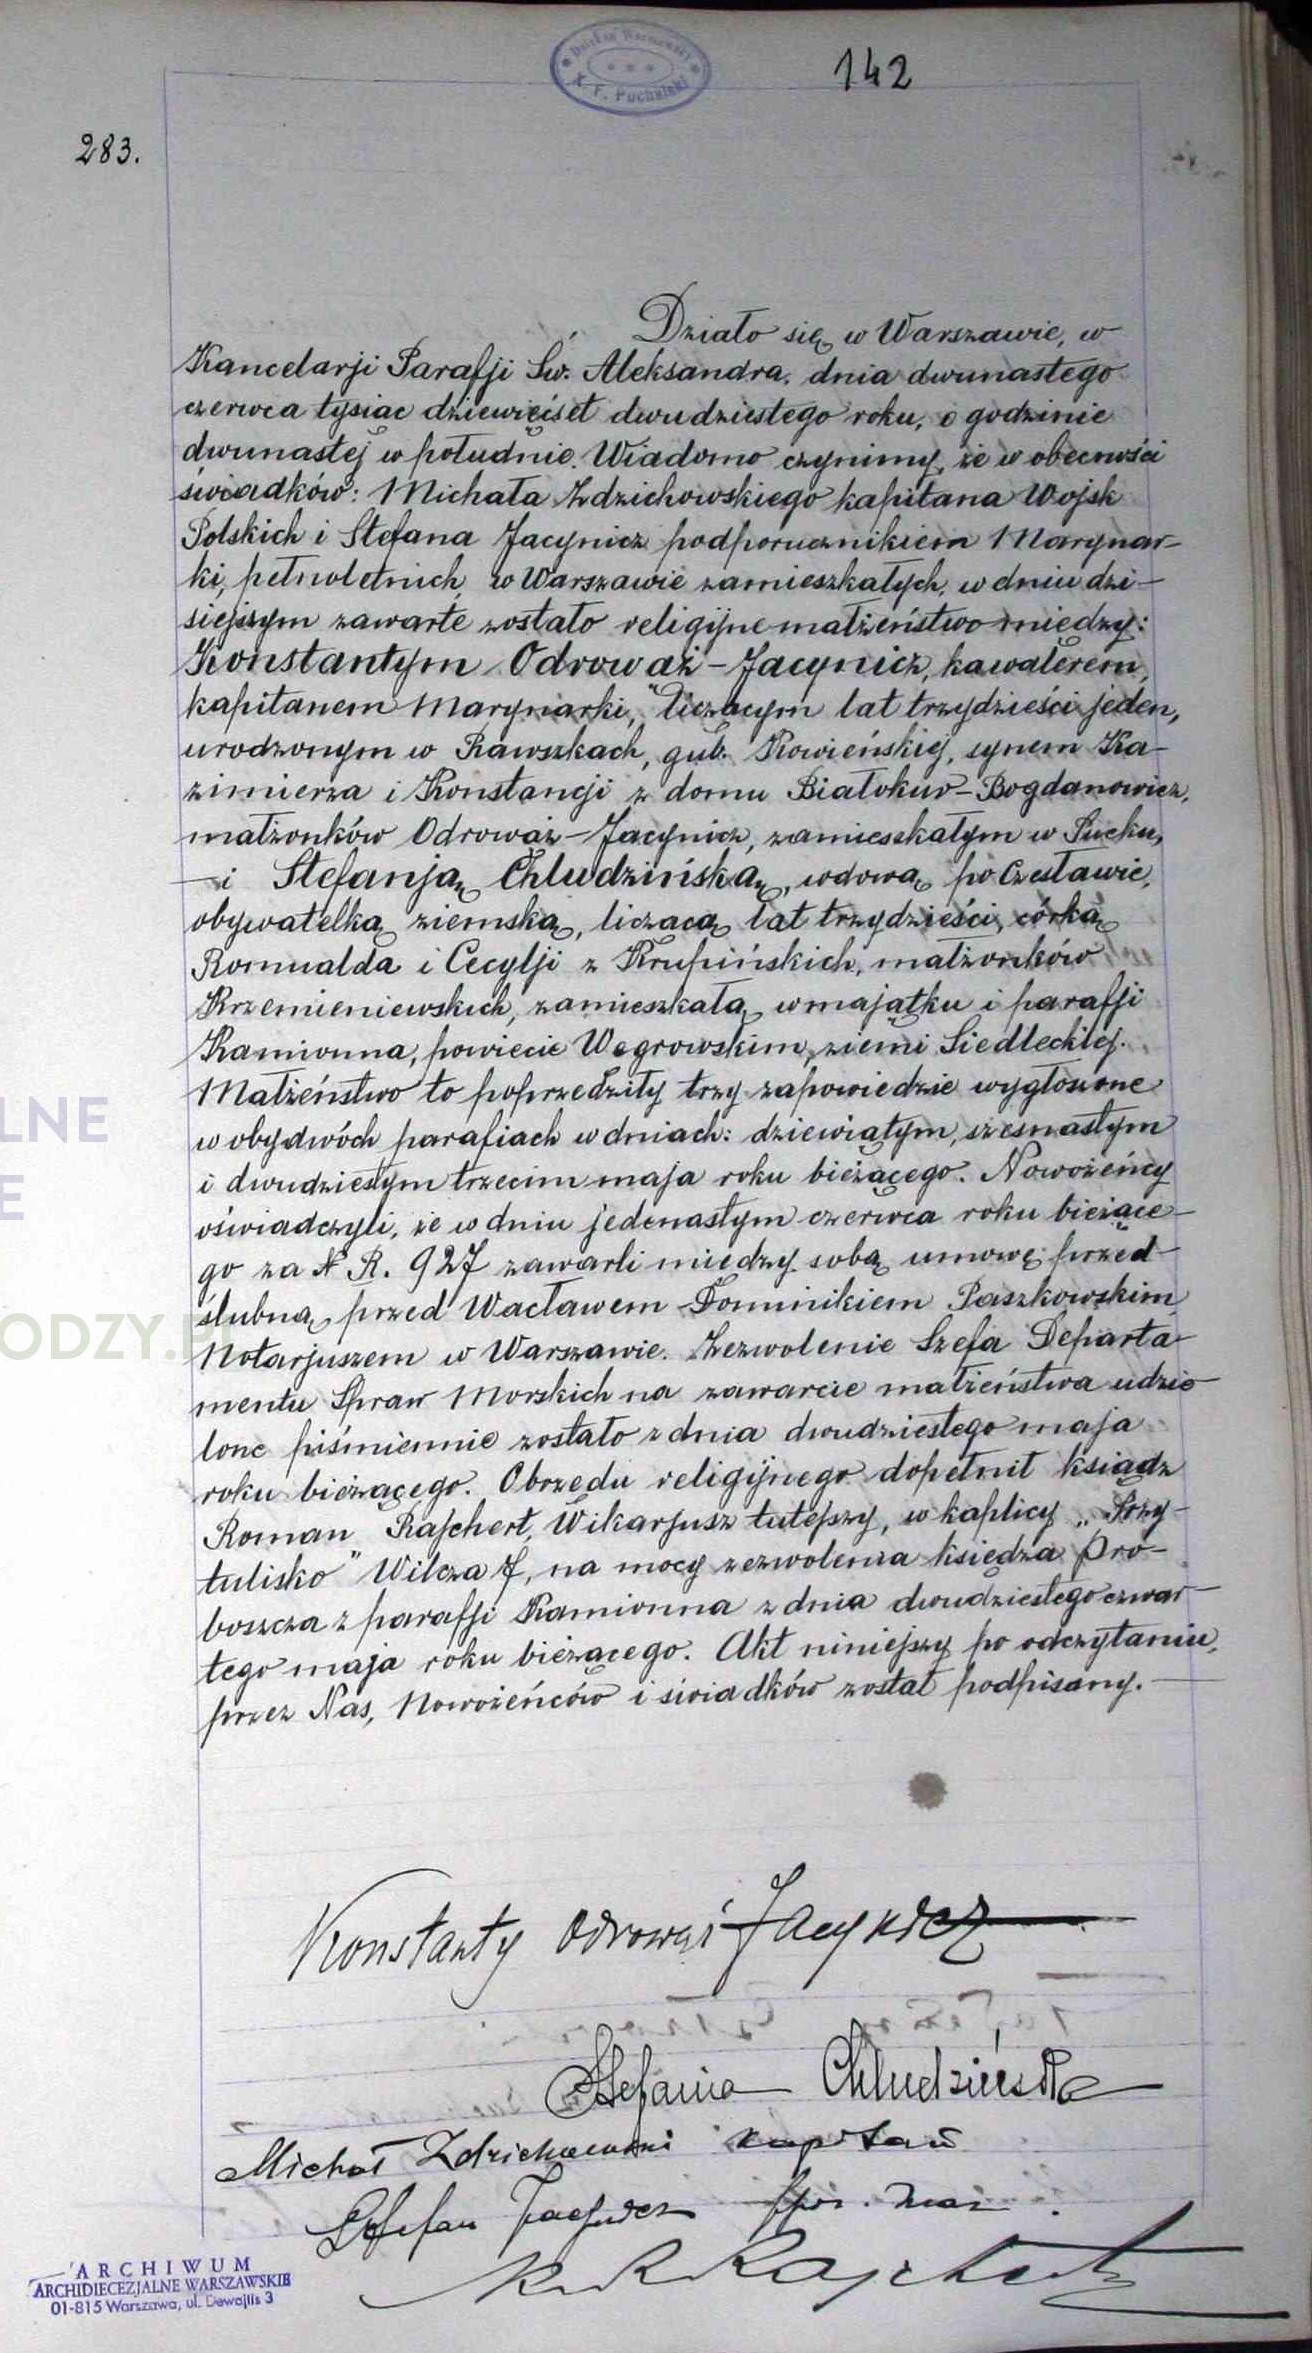 Dziekan Warszawski
X. F. Puchalski
142
283.
Działo się w Warszawie, w
Kancelarji Parafji Św. Aleksandra, dnia dwunastego
czerwca tysiąc dziewięćset dwudziestego roku, o godzinie
dwunastej w południe. Wiadomo czynimy, że w obecności
świadków: Michała Zdzichowskiego kapitana Wojsk
Polskich i Stefana Jacynicz podporucznikiem Marynar-
ki, pełnoletnich, w Warszawie zamieszkałych, w dniu dzi-
siejszym zawarte zostało religijne małżeństwo między:
Konstantym Odrowąż-Jacynicz, kawalerem,
kapitanem Marynarki, liczącym lat trzydzieści jeden,
urodzonym w Rawszkach, gub. Kowieńskiej, synem Ka-
zimierza i Konstancji z domu Białokur-Bogdanowicz,
małżonków Odrowąż-Jacynicz, zamieszkałym w Pucku,
— i Stefanją Chludzińską, wdową po Czesławie,
obywatelką ziemską, liczącą lat trzydzieści, córką
Romualda i Cecylji z Krupińskich, małżonków
Krzemieniewskich, zamieszkałą w majątku i parafji
Kamionna, powiecie Węgrowskim, ziemi Siedleckiej.
Małżeństwo to poprzedziły trzy zapowiedzie wygłoszone
w obydwóch parafiach w dniach: dziewiątym, szesnastym
i dwudziestym trzecim maja roku bieżącego. Nowożeńcy
oświadczyli, że w dniu jedenastym czerwca roku bieżące-
go za N R. 927 zawarli między sobą umowę przed-
ślubną przed Wacławem-Dominikiem Paszkowskim
Notarjuszem w Warszawie. Zezwolenie Szefa Departa-
mentu Spraw Morskich na zawarcie małżeństwa udzie-
lone piśmiennie zostało z dnia dwudziestego maja
roku bieżącego. Obrzędu religijnego dopełnił ksiądz
Roman Rajchert, Wikarjusz tutejszy, w kaplicy „Przy-
tulisko" Wilcza 7, na mocy zezwolenia księdza Pro-
boszcza z parafji Kamionna z dnia dwudziestego czwar-
tego maja roku bieżącego. Akt niniejszy po odczytaniu,
przez Nas, Nowożeńców i świadków został podpisany. —
Konstanty Odrowąż Jacynicz
Stefania Chludzińska
Michał Zdzichowski kapitan
Stefan Jacynicz ppor. mar.
X R Rajchert
LNE
E
ODZY.PL
ARCHIWUM
ARCHIDIECEZJALNE WARSZAWSKIE
01-815 Warszawa, ul. Dewajtis 3